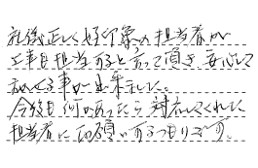 礼儀正しく好印象の担当者が
工事を担当すると言って頂き安心して
お任せる事が出来ました。
今後も何かあったら対応してくれた
担当者にお願いするつもりです。